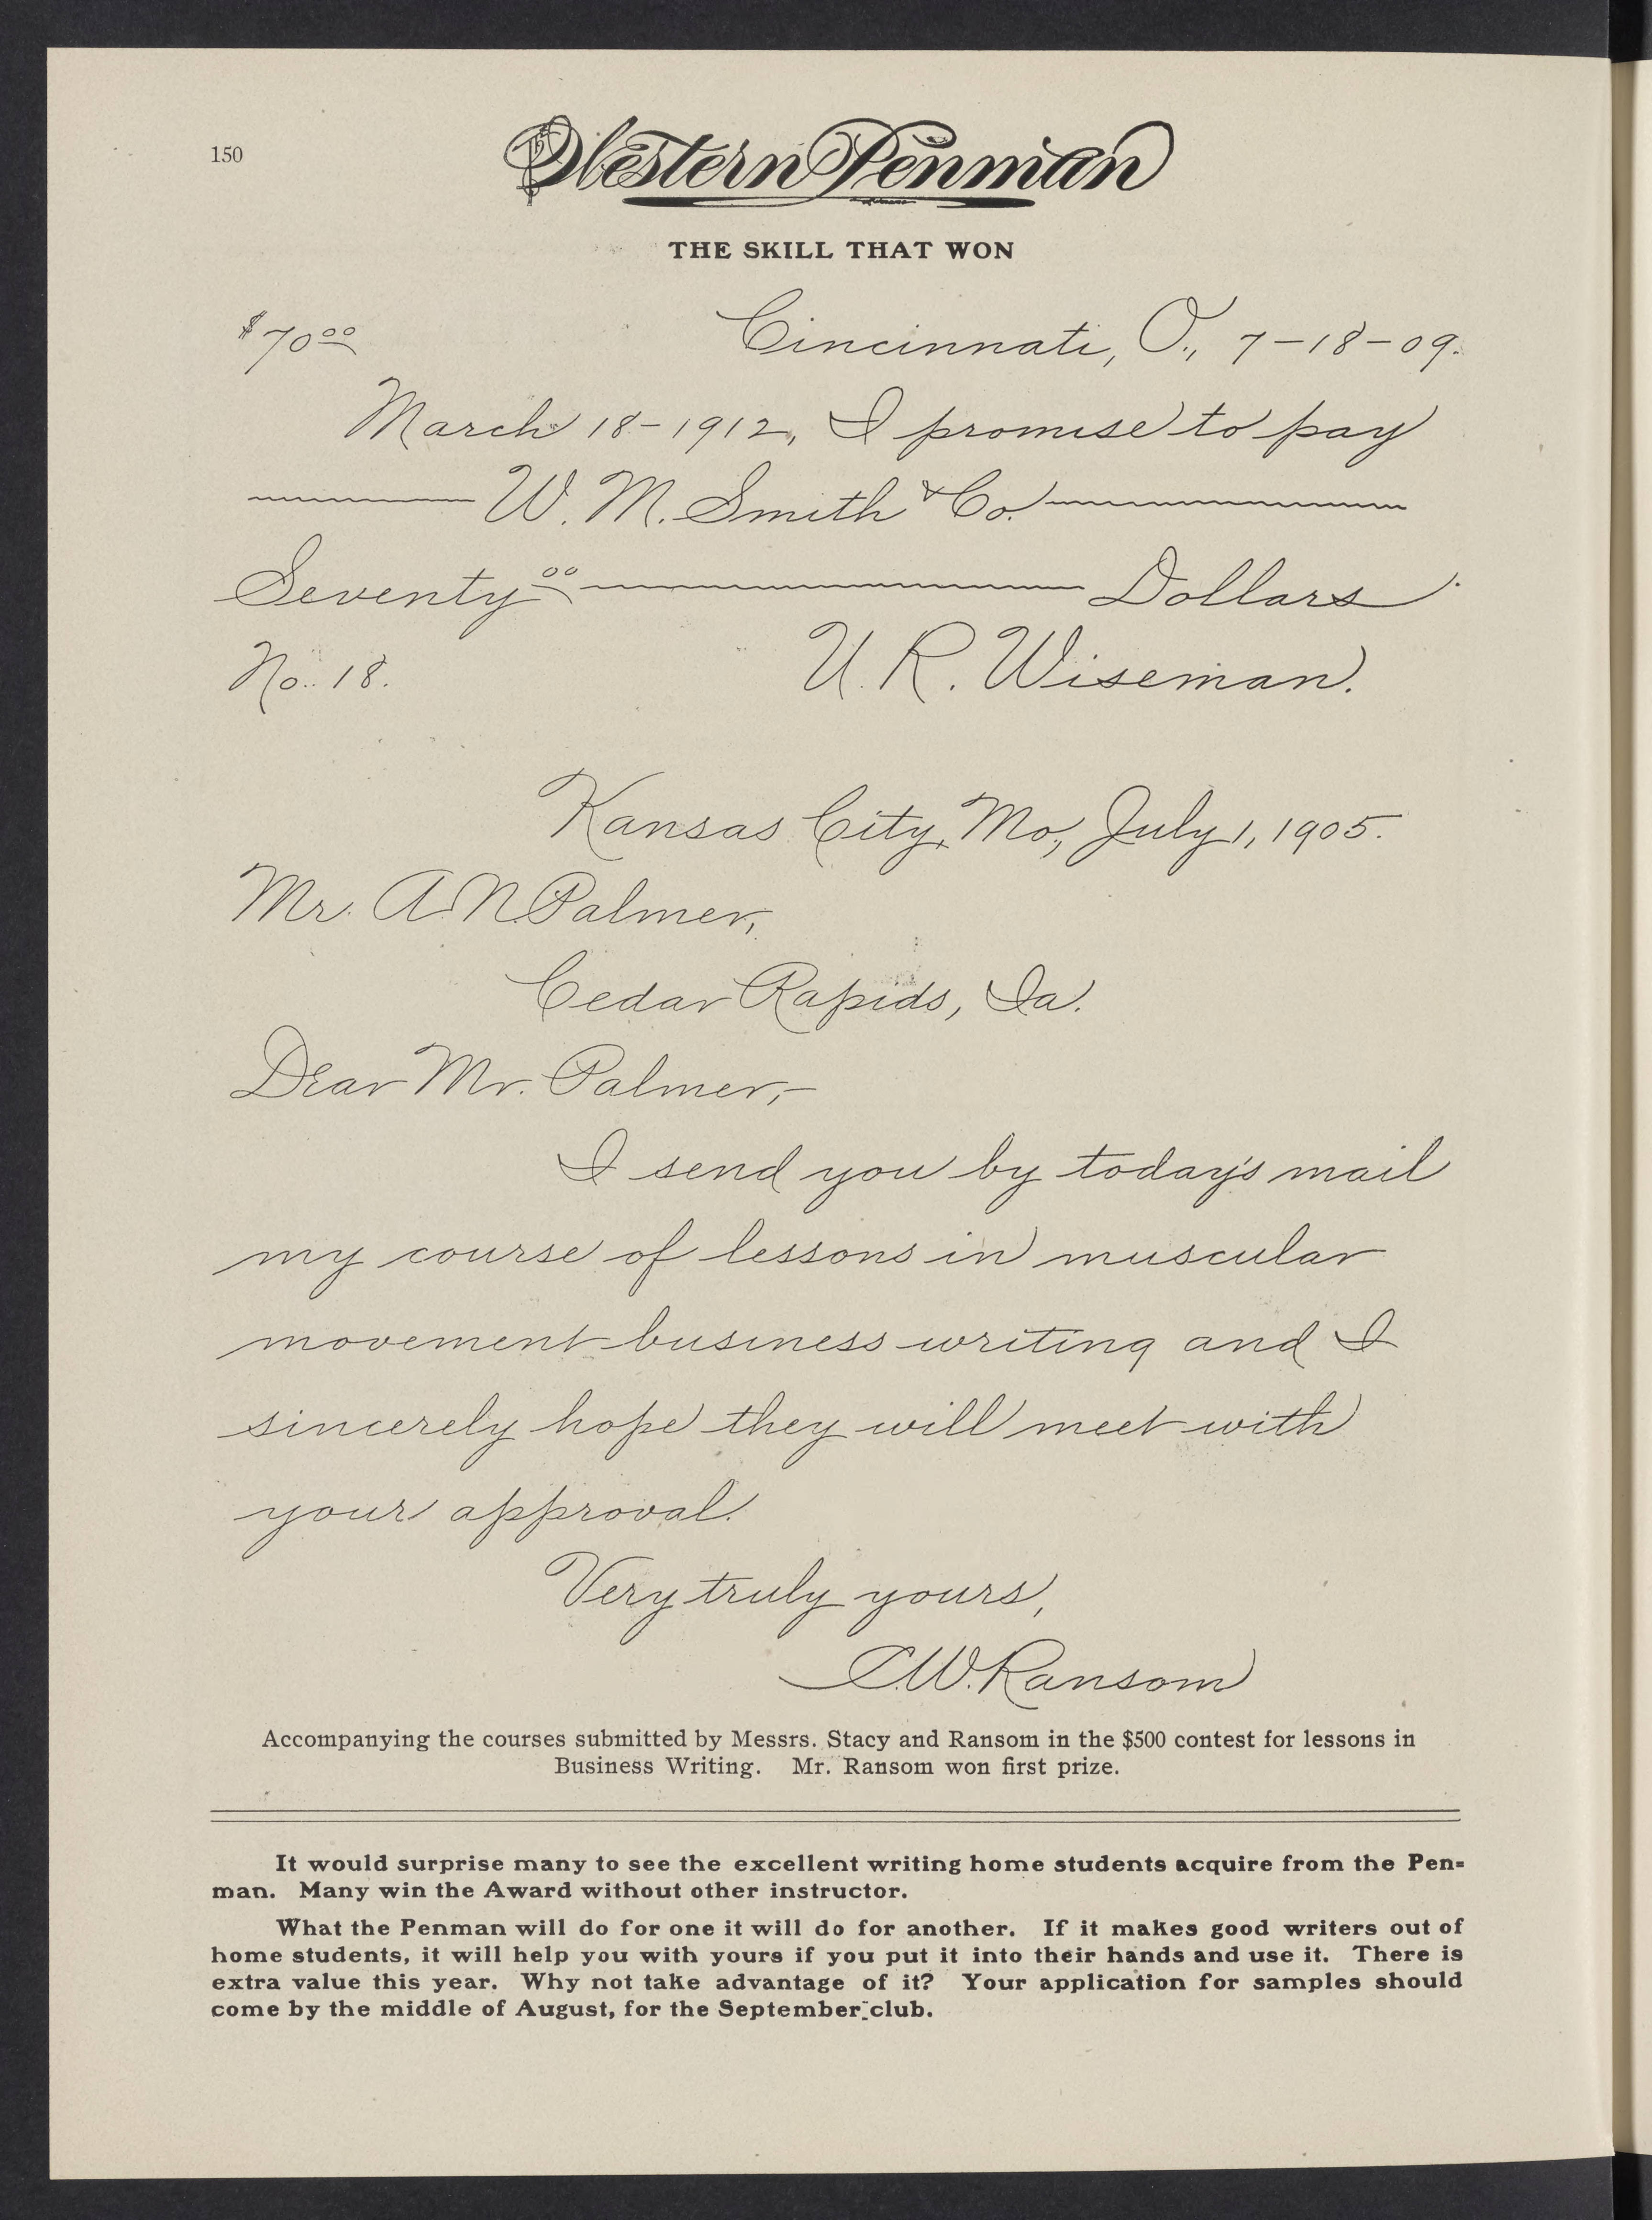 150
Western Penman
THE SKILL THAT WON
$70 00 Cincinnati, O., 7-18-09.
March 18-1912, I promise to pay
W. M. Smith & Co.
Seventy 00 Dollars
No. 18. U. R. Wiseman.
Kansas City, Mo., July 1, 1905.
Mr. A. N. Palmer,
Cedar Rapids, Ia.
Dear Mr. Palmer,-
I send you by today's mail
my course of lessons in muscular
movement business writing and I
sincerely hope they will meet with
your approval.
Very truly yours,
C.W. Ransom
Accompanying the courses submitted by Messrs. Stacy and Ransom in the $500 contest for lessons in
Business Writing. Mr. Ransom won first prize.
It would surprise many to see the excellent writing home students acquire from the Pen-
man. Many win the Award without other instructor.
What the Penman will do for one it will do for another. If it makes good writers out of
home students, it will help you with yours if you put it into their hands and use it. There is
extra value this year. Why not take advantage of it? Your application for samples should
come by the middle of August, for the September club.